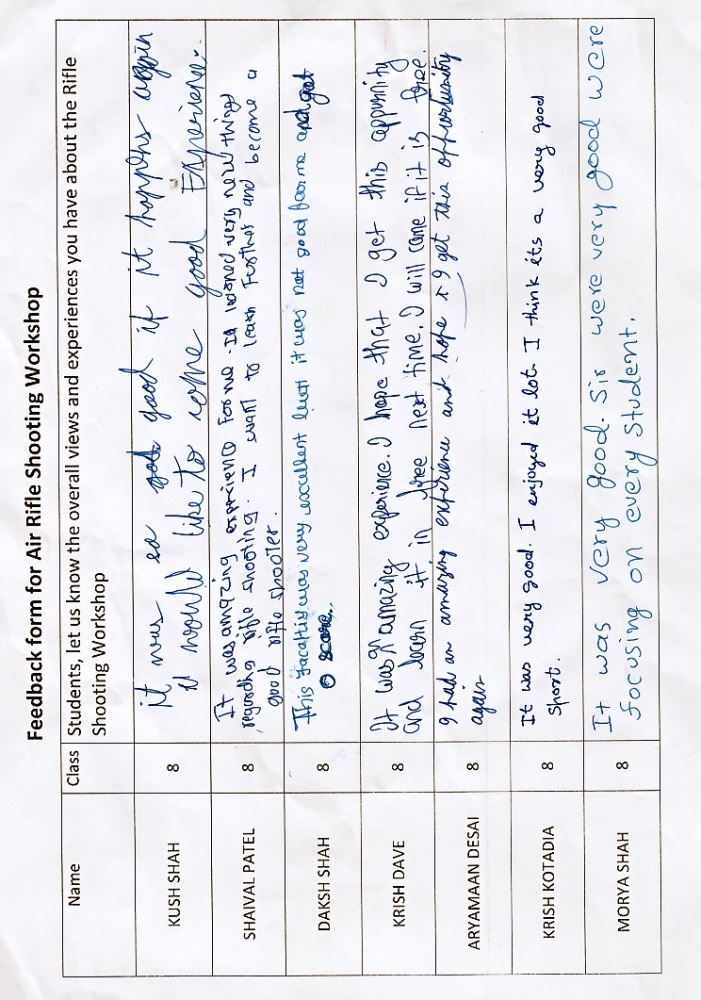 Feedback form for Air Rifle Shooting Workshop
Name Class Students, let us know the overall views and experiences you have about the Rifle
Shooting Workshop
KUSH SHAH 8 it was good if it happens again
I would like to come good Experience.
SHAIVAL PATEL 8 It was amazing experience For me. I learned very new things
regarding rifle shooting. I want to learn Further and become a
good rifle shooter.
DAKSH SHAH 8 This was very excellent but it was not good for me and got
0 score...
KRISH DAVE 8 It was amazing experience. I hope that I get this
and learn it in free next time. I will come if it is free.
ARYAMAAN DESAI 8 I had an amazing experience and hope I get this opportunity
again
KRISH KOTADIA 8 It was very good. I enjoyed it lot. I think its a very good
sport.
MORYA SHAH 8 It was very good. Sir were very good were
focusing on every student.